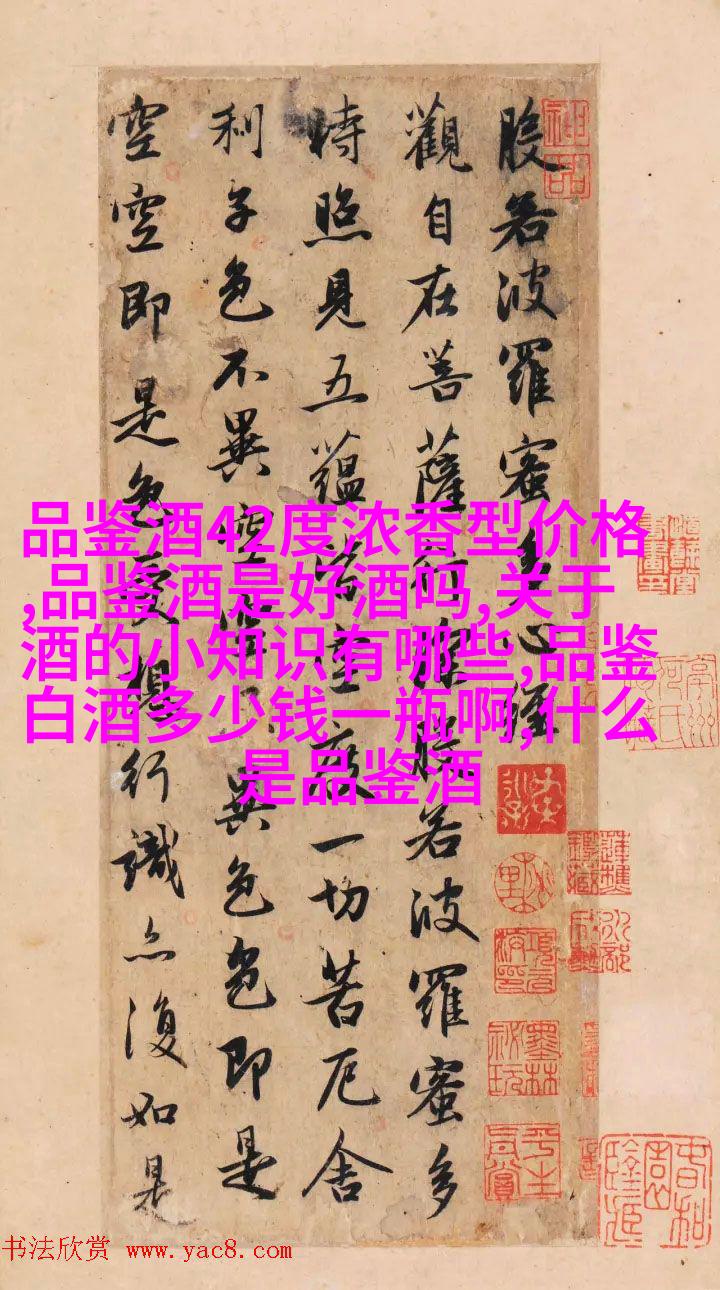 般若波羅蜜多心經
觀自在菩薩行深般若波羅蜜多
時照見五蘊皆空度一切苦厄舍
利子色不異空空不異色色即是
空空即是色受想行識亦復如是
神品
品鉴酒42度浓香型价格
,品鉴酒是好酒吗,关于
酒的小知识有哪些,品鉴
白酒多少钱一瓶啊,什么
是品鉴酒
书法欣赏 www.yac8.com